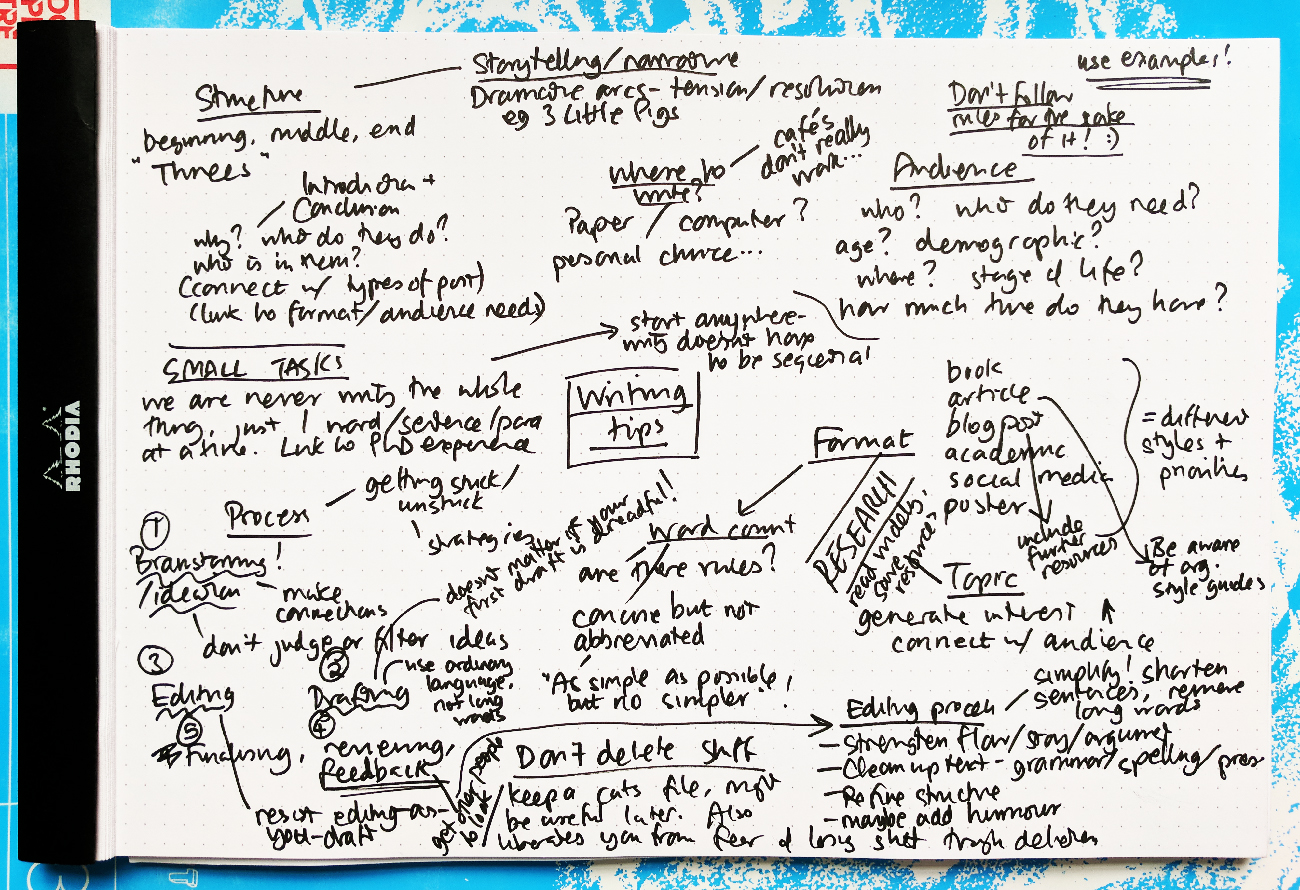 Storytelling/narrative
Dramatic arcs - tension/resolution
eg 3 Little Pigs
use examples!
Structure
beginning, middle, end
"Threes"
Introduction +
Conclusion
why? what do they do?
what is in them?
(connect w/ types of post)
(link to format/audience needs)
where to
write?
cafés
don't really
work...
Paper / computer?
personal choice...
Don't follow
rules for the sake
of it! :)
Audience
who? what do they need?
age? demographic?
where? stage of life?
how much time do they have?
SMALL TASKS
we are never writing the whole
thing, just 1 word/sentence/para
at a time. Link to PhD experience
start anywhere -
writing doesn't have
to be sequential
Writing
tips
Format
book
article
blog post
academic
social media
poster
= different
styles +
priorities
include
further
resources
Be aware
of org.
style guides
RESEARCH
read models,
save
resources,
Process
getting stuck/
unstuck
strategies
1
Brainstorming!
/ideation
make
connections
don't judge or filter ideas
doesn't matter if your
first draft is dreadful!
word count
are there rules?
concise but not
abbreviated
"As simple as possible,
but no simpler"!
Topic
generate interest
connect w/ audience
3
Editing
2
Drafting
4
use ordinary
language,
not long
words
5
Finishing, reviewing,
feedback
get other people
to look
resist editing-as-
you-draft
Don't delete stuff
keep a cuts file, might
be useful later. Also
liberates you from fear of losing stuff through deletion
Editing process
simplify! shorten
sentences, remove
long words
- Strengthen flow/story/argument
- Clean up text - grammar/spelling/prose
- Refine structure
- maybe add humour
RHODIA